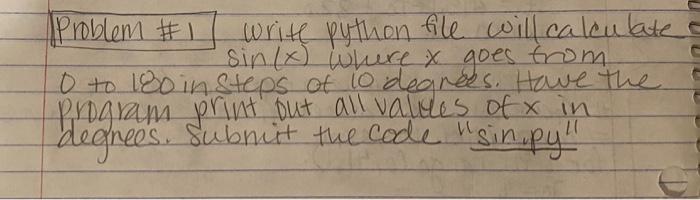 Problem #1 write python file will calculate
sin(x) where x goes from
0 to 180 in steps of 10 degrees. Have the
program print out all values of x in
degrees. Submit the code "sin.py"